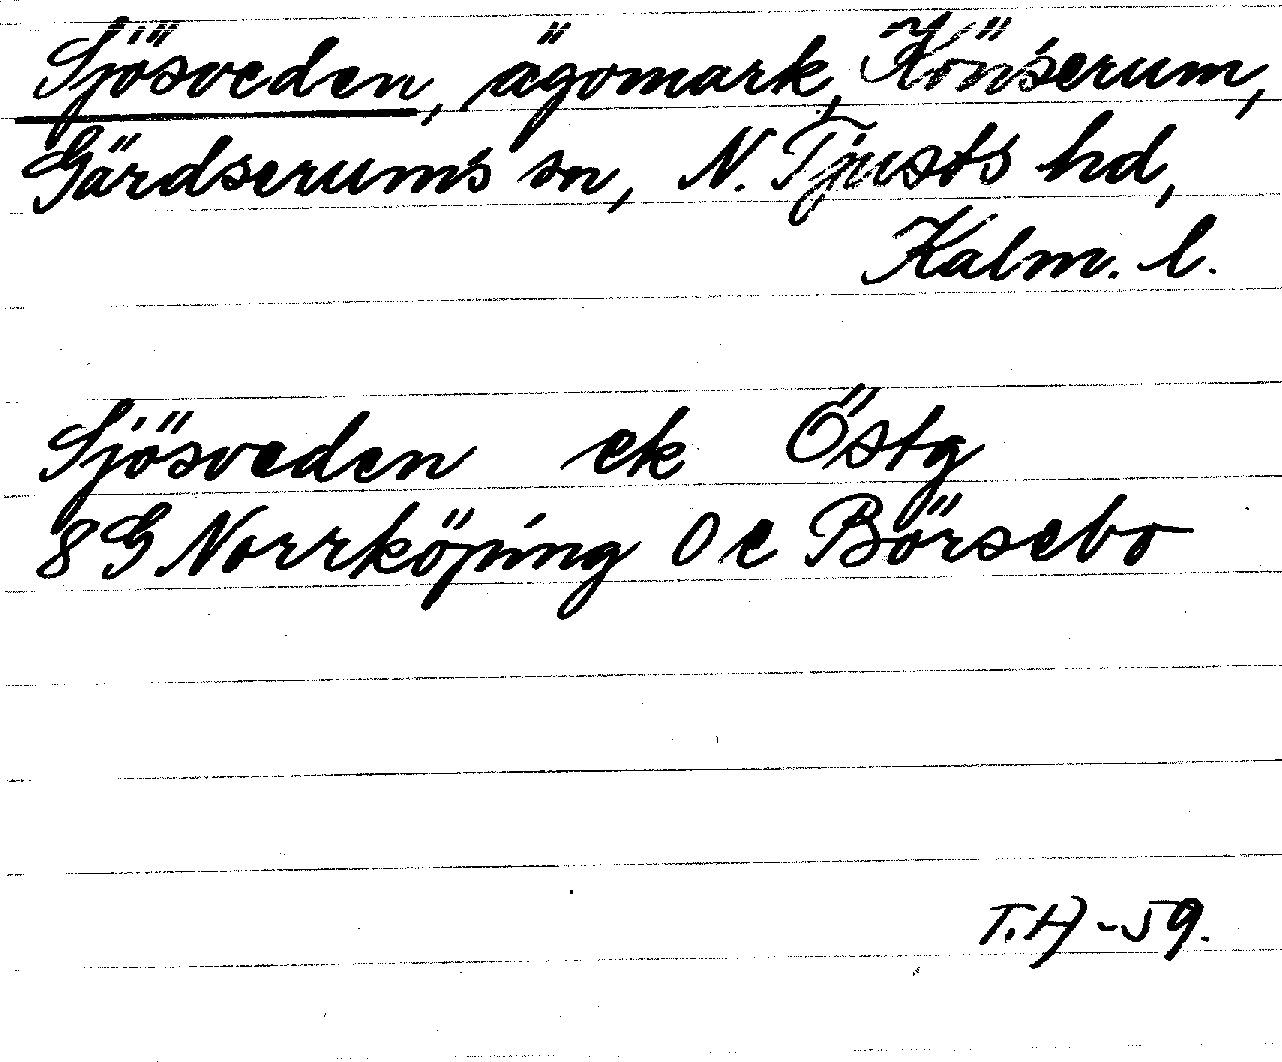 Sjösveden, ägomark, Könserum,
Gärdserums sn, N. Tjusts hd,
Kalm. l.
Sjösveden ek Östg
8 G Norrköping 0 e Börsebo
T.H -59.